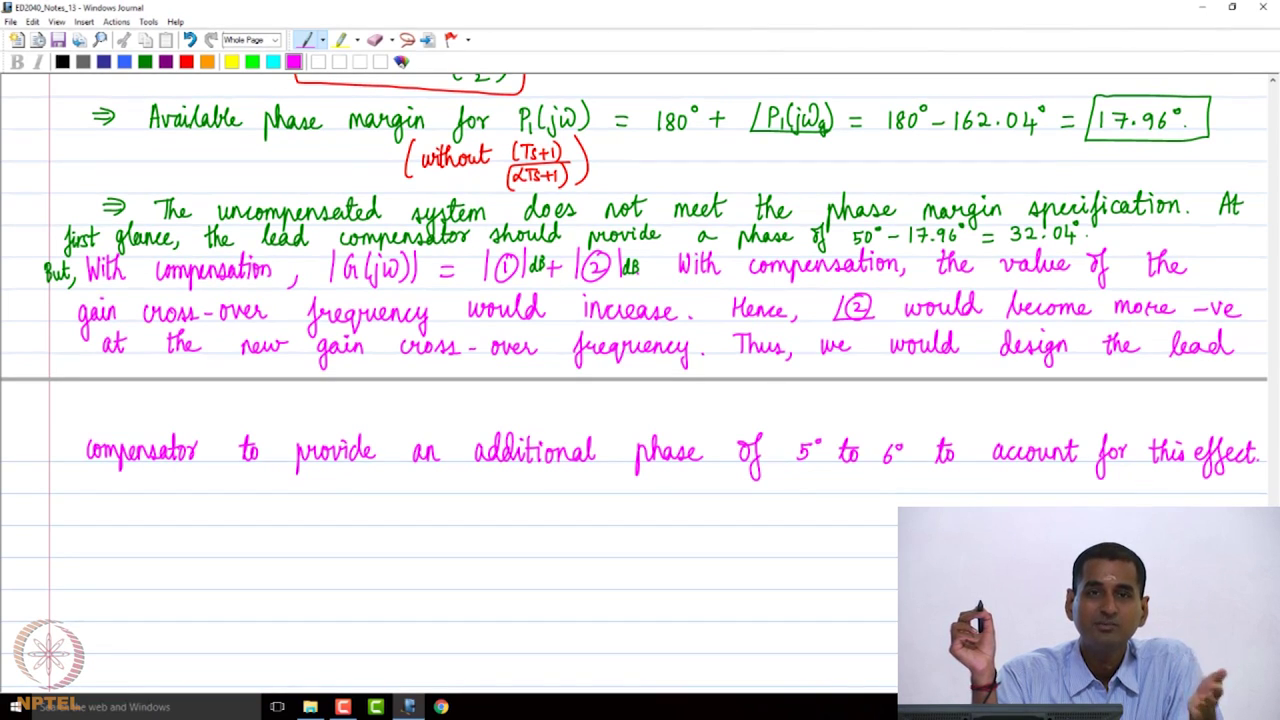 ED2040_Notes_13 - Windows Journal
File Edit View Insert Actions Tools Help
Whole Page
B I
(2)
⇒ Available phase margin for P₁(jω) = 180° + ∠P₁(jωg) = 180° - 162.04° = 17.96°.
(without (Ts+1)/(αTs+1))
⇒ The uncompensated system does not meet the phase margin specification. At
first glance, the lead compensator should provide a phase of 50° - 17.96° = 32.04°.
But, With compensation, |G(jω)| = |①|dB + |②|dB With compensation, the value of the
gain cross-over frequency would increase. Hence, ∠② would become more -ve
at the new gain cross-over frequency. Thus, we would design the lead
compensator to provide an additional phase of 5° to 6° to account for this effect.
NPTEL
Search the web and Windows